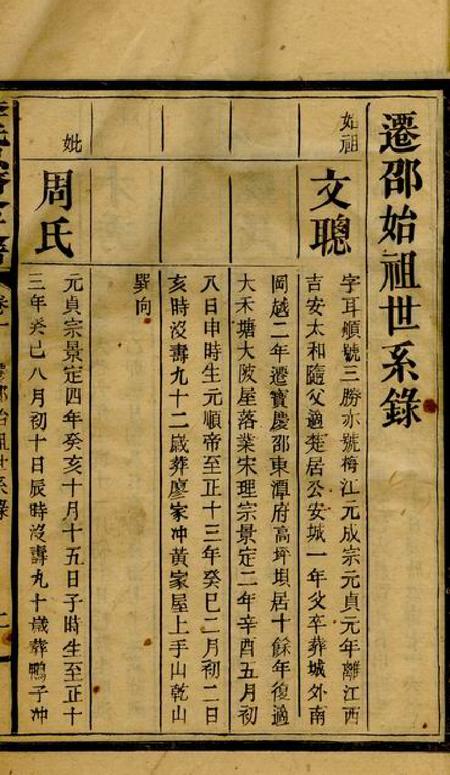 遷邵始祖世系錄
始祖
文聰
字耳順號三勝亦號梅江元成宗元貞元年離江西
吉安太和隨父適楚居公安城一年父卒葬城外南
岡越二年遷寶慶邵東潭府高坪垻居十餘年復適
大禾塘大陂屋落業宋理宗景定二年辛酉五月初
八日申時生元順帝至正十三年癸巳二月初二日
亥時沒壽九十二歲葬廖家冲黃家屋上手山乾山
巽向
妣
周氏
元貞宗景定四年癸亥十月十五日子時生至正十
三年癸巳八月初十日辰時沒壽九十歲葬鴨子冲
卷一
遷邵始祖世系錄